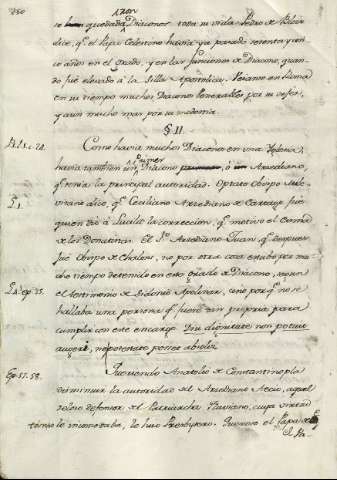 250
quedado Diaconos toda su vida. Pedro de Blois
dice, q.e el Papa Celestino havia ya pasado setenta y cin
co años en el Grado, y en las funciones de Diacono, quan
do fué elevado à la Silla Apostolica. Veianse en Roma
en su tiempo muchos Diaconos venerables por su vejez,
y aun mucho mas por su modestia
§ II.
Como havia muchos Diaconos en una Yglesia,
havia tambien un Primer Diacono, ó Arcediano,
q.e tenia la principal autoridad. Optato Obispo
dice, q.e Ceciliano Arcediano de Cartago fué
quien dió à Lucila la correccion, q.e motivó el
de los Donatistas. El S.r Arcediano Juan, q.e despues
fué Obispo de Chalon, no por otra cosa estubo por mu
cho tiempo detenido en este Grado de Diacono, segun
el testimonio de Sidonio Apolinar, sino por q.e no se
hallaba una persona q.e fuese tan propria para
cumplir con este encargo. Diu dignitate non potuit
augeri, ne potestate posset absolvi
Queriendo Anatolio de Constantinopla
disminuir la autoridad del Arcediano Aecio, aquel
zeloso defensor del Patriarcha Flaviano, cuya virtud
le incomodaba, lo hizo Presbytero. Pero el Papa S.n